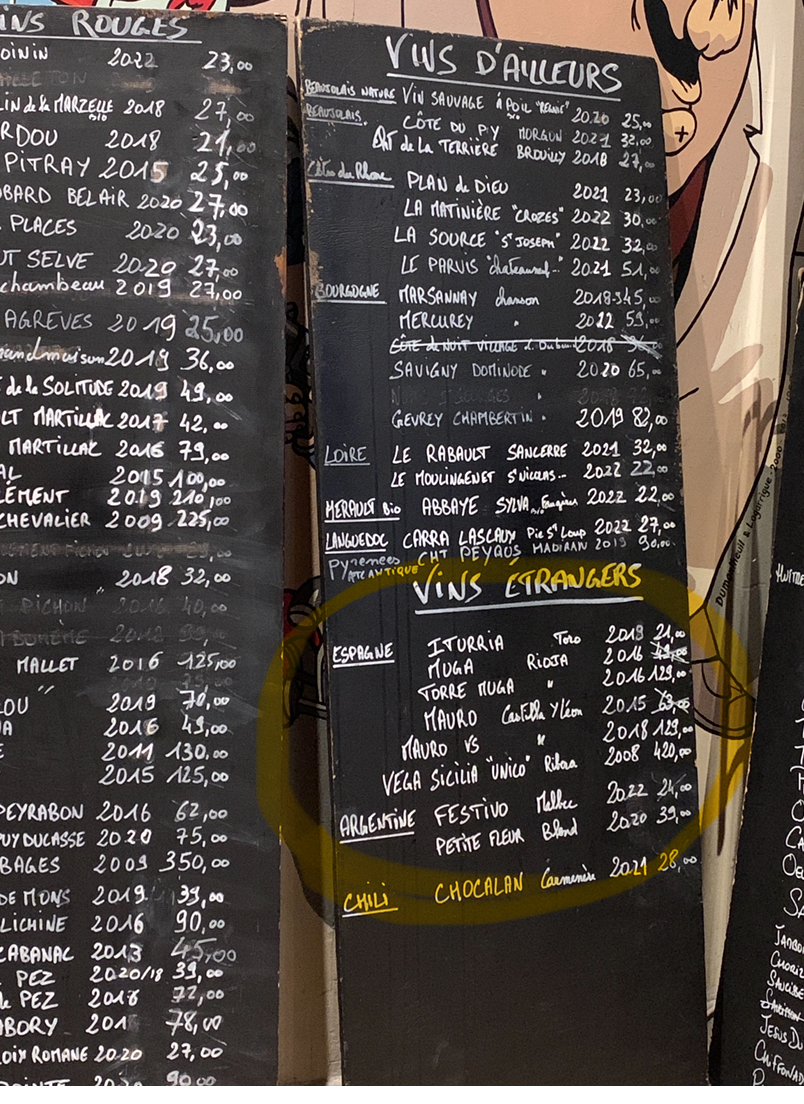 INS ROUGES
OININ 2022 23,00
LIN de la MARZELLE bio 2018 27,00
RDOU 2018 21,00
PITRAY 2015 25,00
OBARD BELAIR 2020 27,00
PLACES 2020 23,00
UT SELVE 2020 27,00
chambeau 2019 27,00
AGRÈVES 2019 25,00
andmaison 2019 36,00
de la SOLITUDE 2019 49,00
LT MARTILLAC 2017 42,00
MARTILLAC 2016 79,00
AL 2015 100,00
LÉMENT 2019 210,00
CHEVALIER 2009 225,00
ON 2018 32,00
PICHON 2016 40,00
MALLET 2016 125,00
LOU " 2019 70,00
IA 2016 49,00
E 2011 130,00
2015 125,00
PEYRABON 2016 62,00
PUY DUCASSE 2020 75,00
BAGES 2009 350,00
DE MONS 2019 39,00
LICHINE 2016 90,00
CABANAC 2013 45,00
PEZ 2020/18 39,00
PEZ 2016 72,00
ABORY 201 78,00
OIX ROMANE 2020 27,00
90,00
VINS D'AILLEURS
BEAUJOLAIS NATURE VIN SAUVAGE à POIL 2020 25,00
BEAUJOLAIS. CÔTE DU PY MORGON 2021 32,00
de la TERRIÈRE BROUILLY 2018 27,00
Côtes du Rhone PLAN de DIEU 2021 23,00
LA MATINIÈRE "CROZES" 2022 30,00
LA SOURCE "St JOSEPH" 2022 32,00
LE PARVIS "chateauneuf..." 2021 51,00
BOURGOGNE MARSANNAY chanson 2018 45,00
MERCUREY " 2022 59,00
CÔTE de NUIT VILLAGE 2018
SAVIGNY DOMINODE " 2020 65,00
GEVREY CHAMBERTIN " 2019 82,00
LOIRE LE RABAULT SANCERRE 2021 32,00
LE MOULINGENET St NICOLAS... 2022 22,00
HERAULT Bio ABBAYE SYLVA Faugères 2022 22,00
LANGUEDOC CARRA LASCAUX Pic St Loup 2022 27,00
PYRENEES ATLANTIQUE CHT PEYROS MADIRAN 2019 30,00
VINS ETRANGERS
ESPAGNE ITURRIA Toro 2019 21,00
MUGA RIOJA 2016 49,00
TORRE MUGA " 2016 129,00
MAURO Castilla Y léon 2015 69,00
MAURO VS " 2018 129,00
VEGA SICILIA "UNICO" Ribera 2008 420,00
ARGENTINE FESTIVO Malbec 2022 24,00
PETITE FLEUR Blend 2020 39,00
CHILI CHOCALAN Carmenère 2021 28,00
Dumonteuil & Lagarrigue 2000